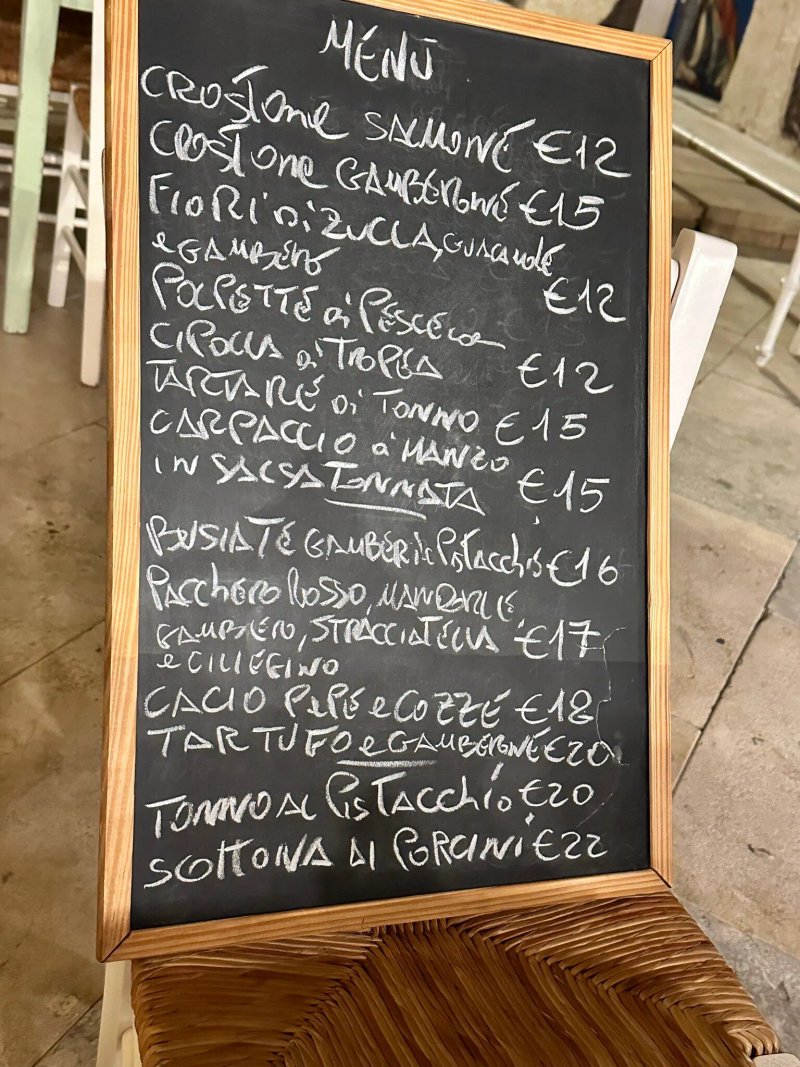 MENÙ
CROSTONE SALMONE €12
CROSTONE GAMBERONE €15
FIORI DI ZUCCA, GUACAMOLE
e GAMBERO
€12
POLPETTE di PESCE con
CIPOLLA di TROPEA €12
TARTARE di TONNO €15
CARPACCIO di MANZO
IN SALSA TONNATA €15
BUSIATE GAMBERI e PISTACCHIO €16
PACCHERO ROSSO, MANDORLE,
GAMBERO, STRACCIATELLA €17
e CILIEGINO
CACIO PEPE e COZZE €18
TARTUFO e GAMBERONE €20
TONNO AL PISTACCHIO €20
SCOTTONA AI PORCINI €22